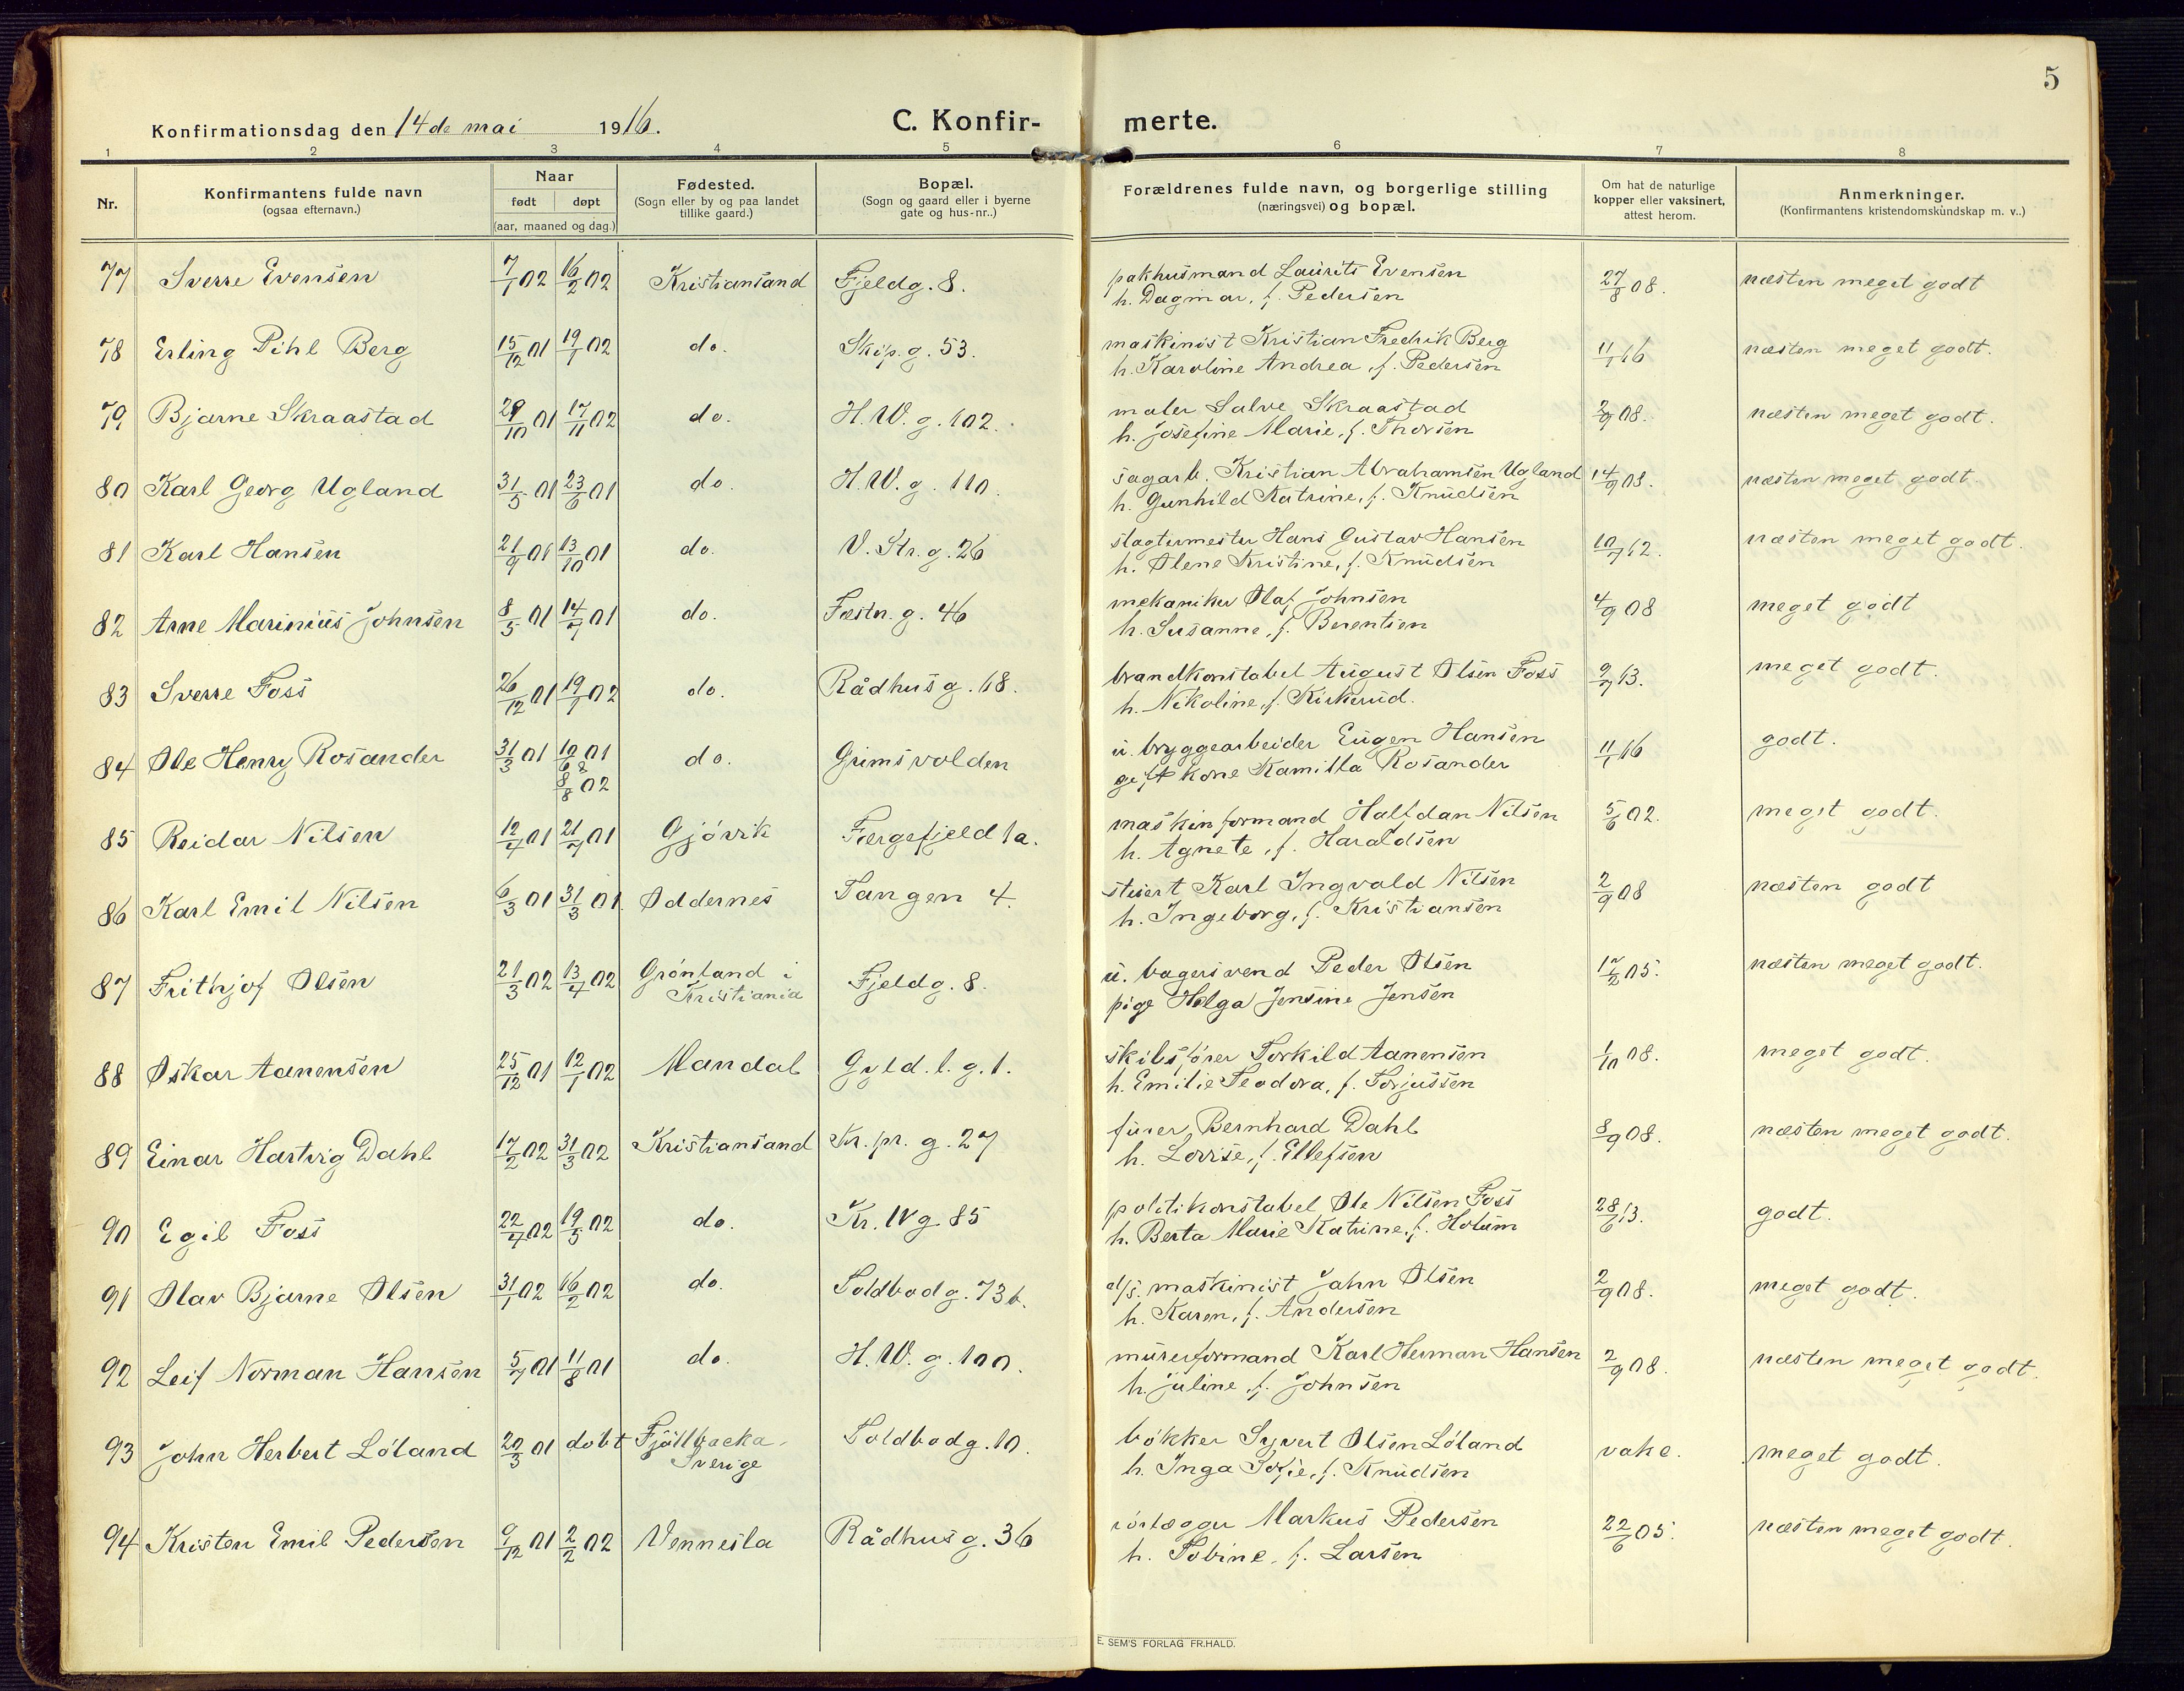 5
Konfirmationsdag den 14de mai 1916.
C. Konfir-
merte.
1 2 3 4 5 6 7 8
Nr.
Konfirmantens fulde navn
(ogsaa efternavn.)
Naar
født døpt
(aar, maaned og dag.)
Fødested.
(Sogn eller by og paa landet
tillike gaard.)
Bopæl.
(Sogn og gaard eller i byerne
gate og hus-nr..)
Forældrenes fulde navn, og borgerlige stilling
(næringsvei) og bopæl.
Om hat de naturlige
kopper eller vaksinert,
attest herom.
Anmerkninger.
(Konfirmantens kristendomskundskap m. v..)
77 Sverre Evensen 7/1 02 16/2 02 Kristiansand Fjeldg. 8. pakhusmand Laurits Evensen 27/8 08. næsten meget godt
h. Dagmar, f. Pedersen
78 Erling Pihl Berg 15/12 01 19/1 02 do. Skip. g. 53. maskinist Kristian Fredrik Berg 11/1 16 næsten meget godt.
h. Karoline Andrea, f. Pedersen
79 Bjarne Skraastad 29/10 01 17/11 02 do. H. W. g. 102. maler Salve Skraastad 2/9 08. næsten meget godt.
h. Josefine Marie, f. Thorsen
80 Karl Georg Ugland 31/5 01 23/6 01 do. H. W. g. 110. sagarb. Kristian Abrahamsen Ugland 14/9 08. næsten meget godt.
h. Gunhild Katrine, f. Knudsen
81 Karl Hansen 21/9 01 13/10 01 do. V. Str. g. 26 slagtermester Hans Gustav Hansen 10/7 12. næsten meget godt.
h. Olene Kristine, f. Knudsen
82 Arne Marinius Johnsen 8/5 01 14/7 01 do. Fæstn. g. 46 mekaniker Olaf Johnsen 4/9 08 meget godt
h. Susanne, f. Berentsen
83 Sverre Foss 26/12 01 19/1 02 do. Rådhusg. 18. brandkonstabel August Olsen Foss 9/7 13. meget godt.
h. Nikoline, f. Kirkerud.
84 Ole Henry Rosander 31/3 01 10/6 01 & do. Grimsvolden u. bryggearbeider Eugen Hansen 11/1 16 godt.
8/8 02 gift kone Kamilla Rosander
85 Reidar Nilsen 12/4 01 21/7 01 Gjövik Færgefjeld 1a. maskinformand Halfdan Nilsen 5/6 02. meget godt.
h. Agnete, f. Haraldsen
86 Karl Emil Nilsen 6/3 01 31/3 01. Oddernes Tangen 4. stuert Karl Ingvald Nilsen 2/9 08 næsten godt
h. Ingeborg, f. Kristiansen
87 Frithjof Olsen 21/3 02 13/4 02 Grönland i Fjeldg. 8. u. bagersvend Peder Olsen 17/2 05. næsten meget godt.
Kristiania pige Helga Jensine Jensen
88 Oskar Aanensen 25/12 01 12/1 02 Mandal Gyld. l. g. 1. skibsfører Torkild Aanensen 1/10 08. meget godt.
h. Emilie Teodora, f. Torjussen
89 Einar Hartvig Dahl 17/2 02 31/3 02 Kristiansand Kr. pr. g. 27 furer Bernhard Dahl 8/9 08. næsten meget godt.
h. Lovise, f. Ellefsen
90 Egil Foss 22/4 02 19/5 02 do. Kr. IV g. 85 politikonstabel Ole Nilsen Foss 28/6 13. godt.
h. Berta Marie Katrine, f. Holum
91 Olav Bjarne Olsen 31/1 02 16/2 02 do. Toldbodg. 73 b. d/s. maskinist Jahn Olsen 2/9 08. meget godt.
h. Karen, f. Andersen
92 Leif Norman Hansen 5/7 01 11/8 01 do. H. W. g. 100. murerformand Karl Herman Hansen 2/9 08. næsten meget godt.
h. Juline, f. Johnsen
93 John Herbert Löland 20/3 01 döbt Fjällbacka Toldbodg. 10. bökker Syvert Olsen Löland vakc. meget godt.
Sverige h. Inga Sofie, f. Knudsen
94 Kristen Emil Pedersen 9/12 01 2/2 02 Vennesla Rådhusg. 36 rörlægger Markus Pedersen 22/6 05. næsten meget godt.
h. Tobine, f. Larsen
E. SEM'S FORLAG FR.HALD.